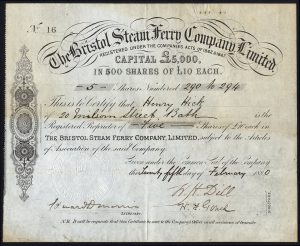 No 16
The Bristol Steam Ferry Company, Limited.
REGISTERED UNDER THE COMPANIES ACTS
CAPITAL £5,000,
IN 500 SHARES OF £10 EACH.
- 5 - Shares Numbered 290 to 294
This is to Certify that Henry
of 20 Street Bath is the
Registered Proprietor of Five Shares of £10 each in
THE BRISTOL STEAM FERRY COMPANY, LIMITED, subject to the Articles
of Association of the said Company.
Given under the Common Seal of the Company
this Twenty fifth day of February 1880
SECRETARY.
N.B. It will be requested that this Certificate be sent to the Company's Office